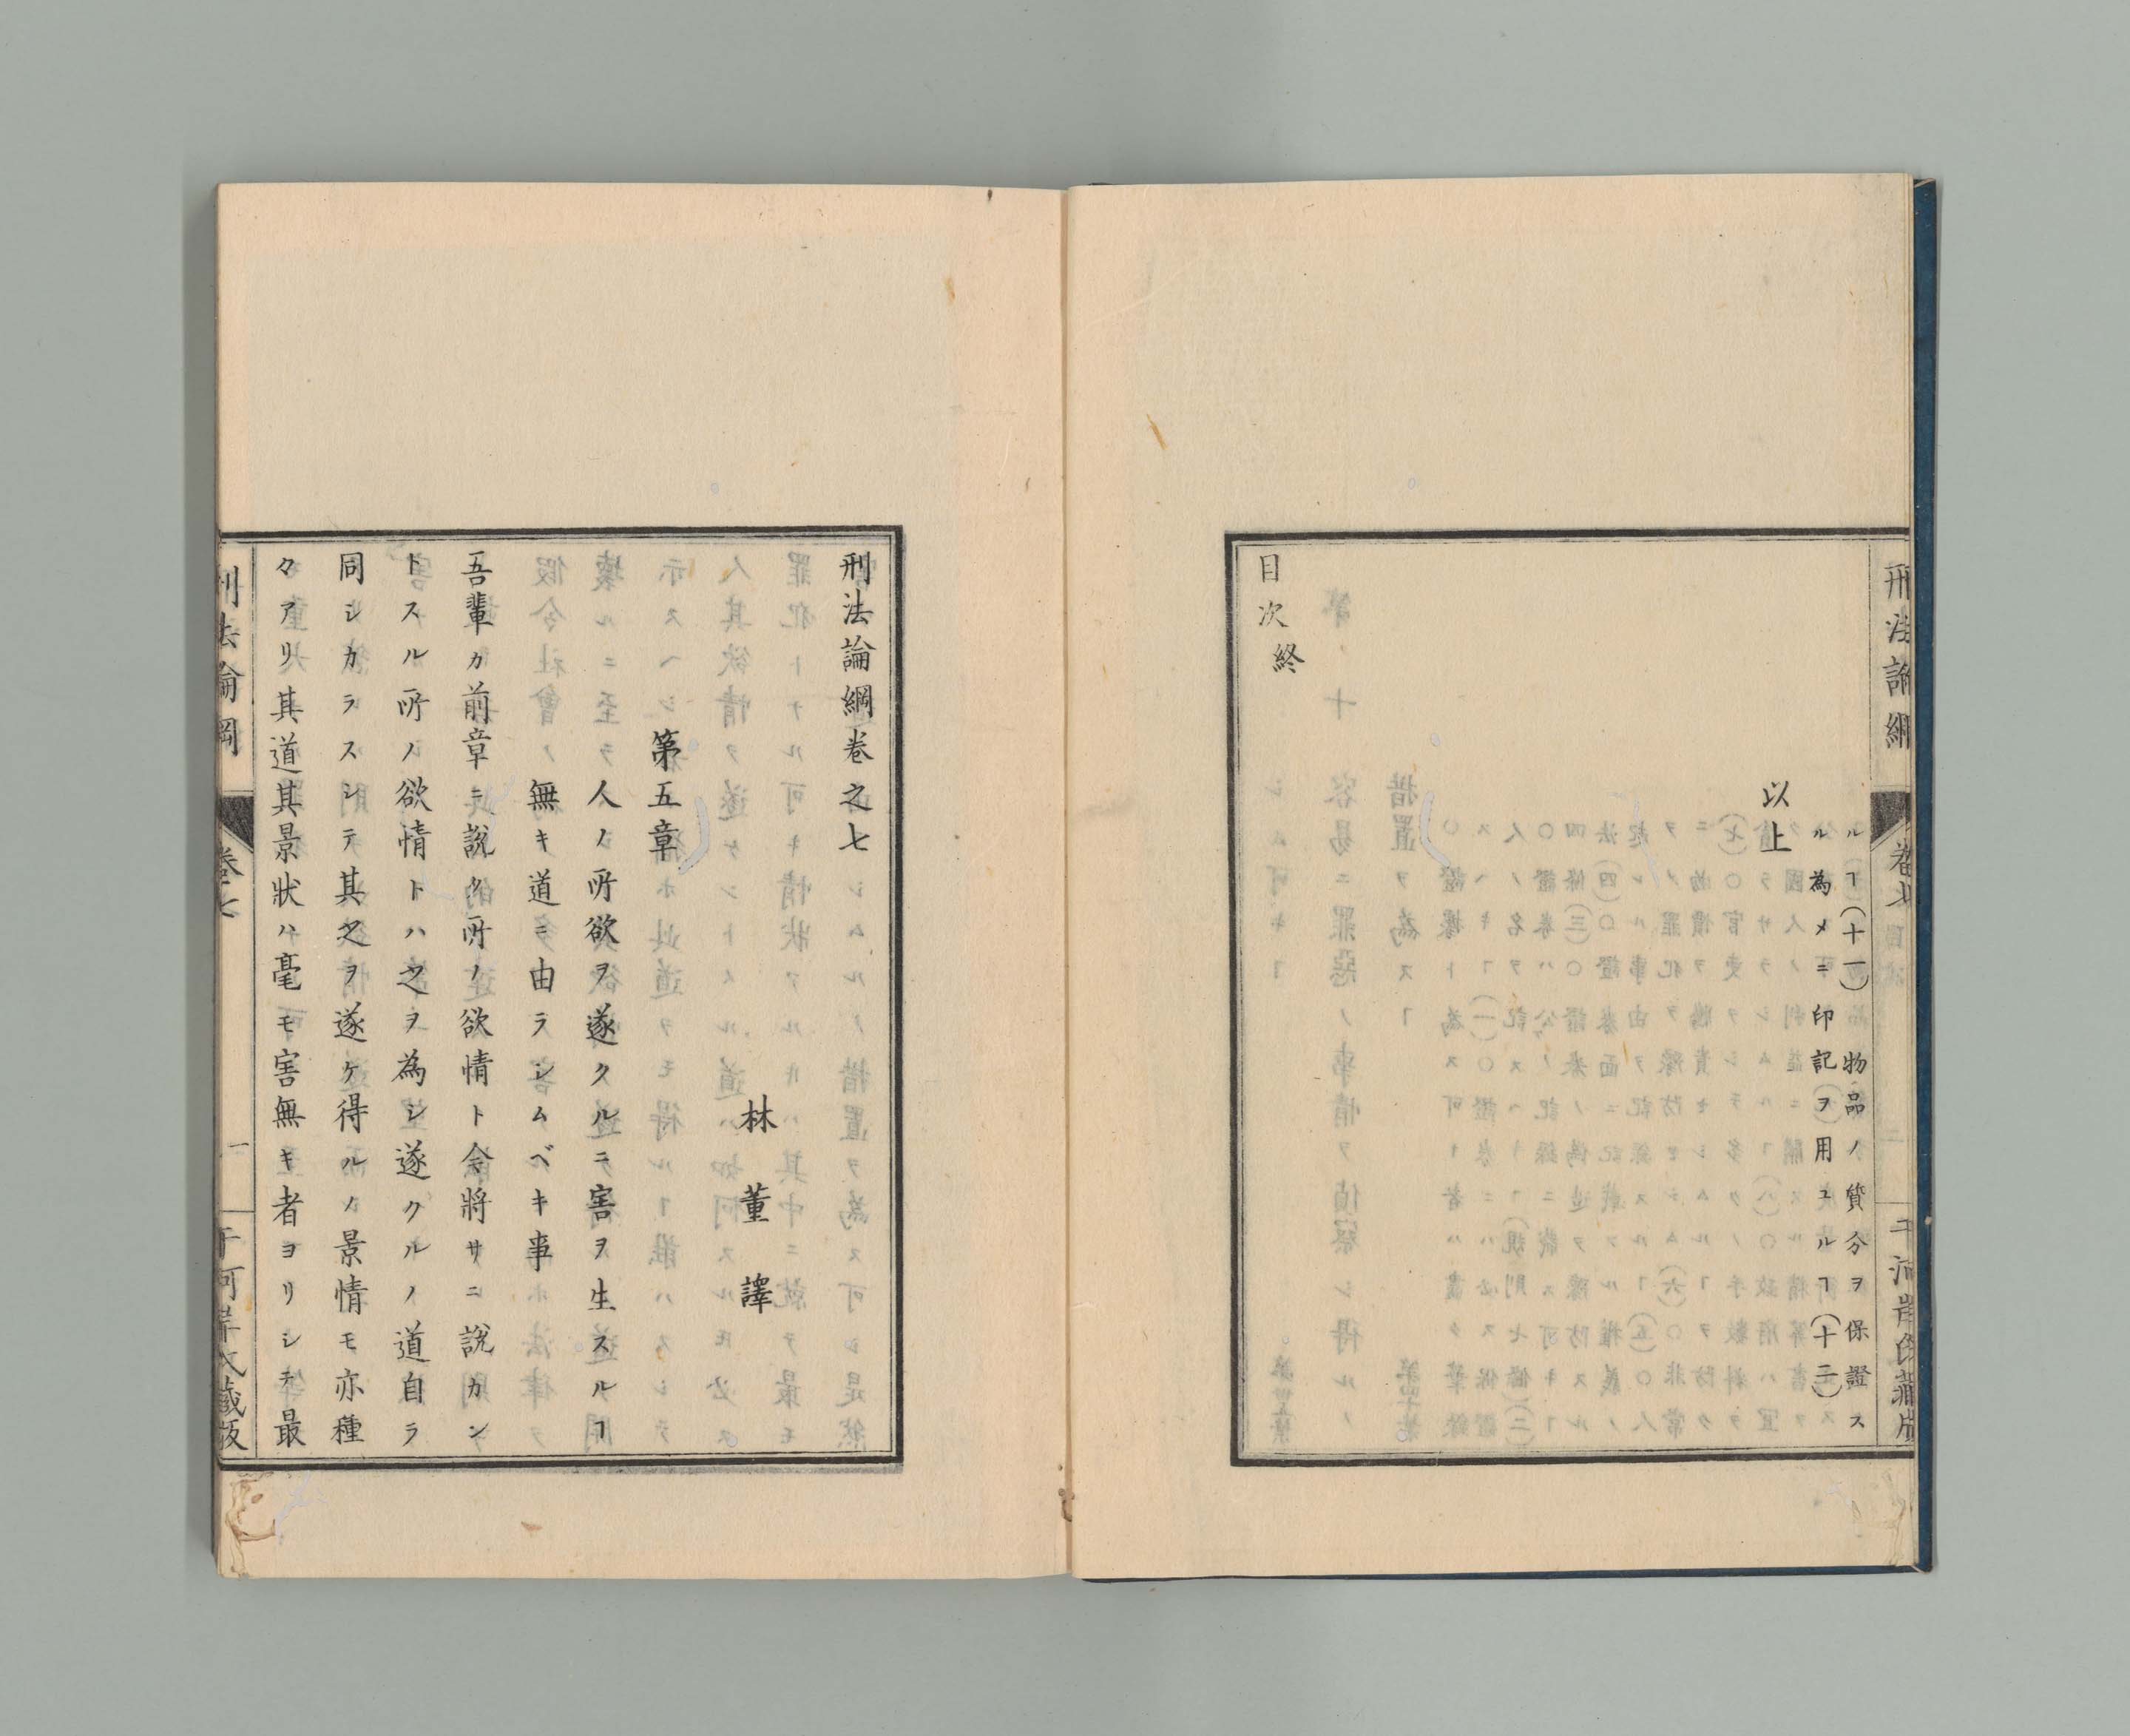 ルヿ(十一)物品ノ質分ヲ保證ス
ル為メニ印記ヲ用ユルヿ(十二)
以上
目次終
刑法論綱卷之七
林董譯
第五章
人ノ所欲ヲ遂クルニ害ヲ生スルヿ
無キ道ニ由ラシムベキ事
吾輩カ前章ニ說ク所ノ欲情ト今將サニ說カン
トスル所ノ欲情トハ之ヲ為シ遂クルノ道自ラ
同シカラスシテ其之ヲ遂ケ得ルノ景情モ亦種
々アリ其道其景狀ハ毫モ害無キ者ヨリシテ最
刑法論綱
卷七
一